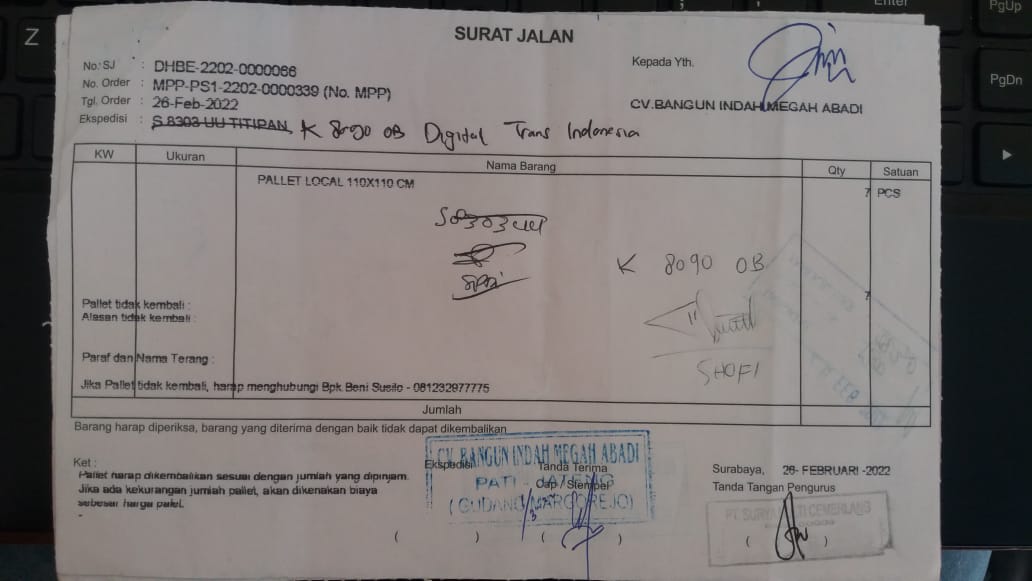 SURAT JALAN
No. SJ : DHBE-2202-0000066
No. Order : MPP-PS1-2202-0000339 (No. MPP)
Tgl. Order : 26-Feb-2022
Ekspedisi : S 8303 UU TITIPAN K 8090 OB Digital Trans Indonesia
Kepada Yth.
CV.BANGUN INDAH MEGAH ABADI
KW Ukuran Nama Barang Qty Satuan
PALLET LOCAL 110X110 CM 7 PCS
K 8090 OB
7
Pallet tidak kembali :
Alasan tidak kembali :
SHOFI
Paraf dan Nama Terang :
Jika Pallet tidak kembali, harap menghubungi Bpk.Beni Susilo - 081232977775
Jumlah
Barang harap diperiksa, barang yang diterima dengan baik tidak dapat dikembalikan
Ket :
Pallet harap dikembalikan sesuai dengan jumlah yang dipinjam.
Jika ada kekurangan jumlah pallet, akan dikenakan biaya
sebesar harga palet.
-
Ekspedisi
( )
Tanda Terima
Cap / Stempel
( )
CV. BANGUN INDAH MEGAH ABADI
PATI - JATENG
( GUDANG MARGOREJO )
Surabaya, 26- FEBRUARI -2022
Tanda Tangan Pengurus
( )